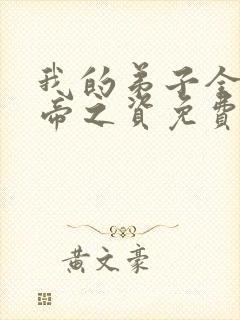 我的弟子全
帝之资免费
黄文豪